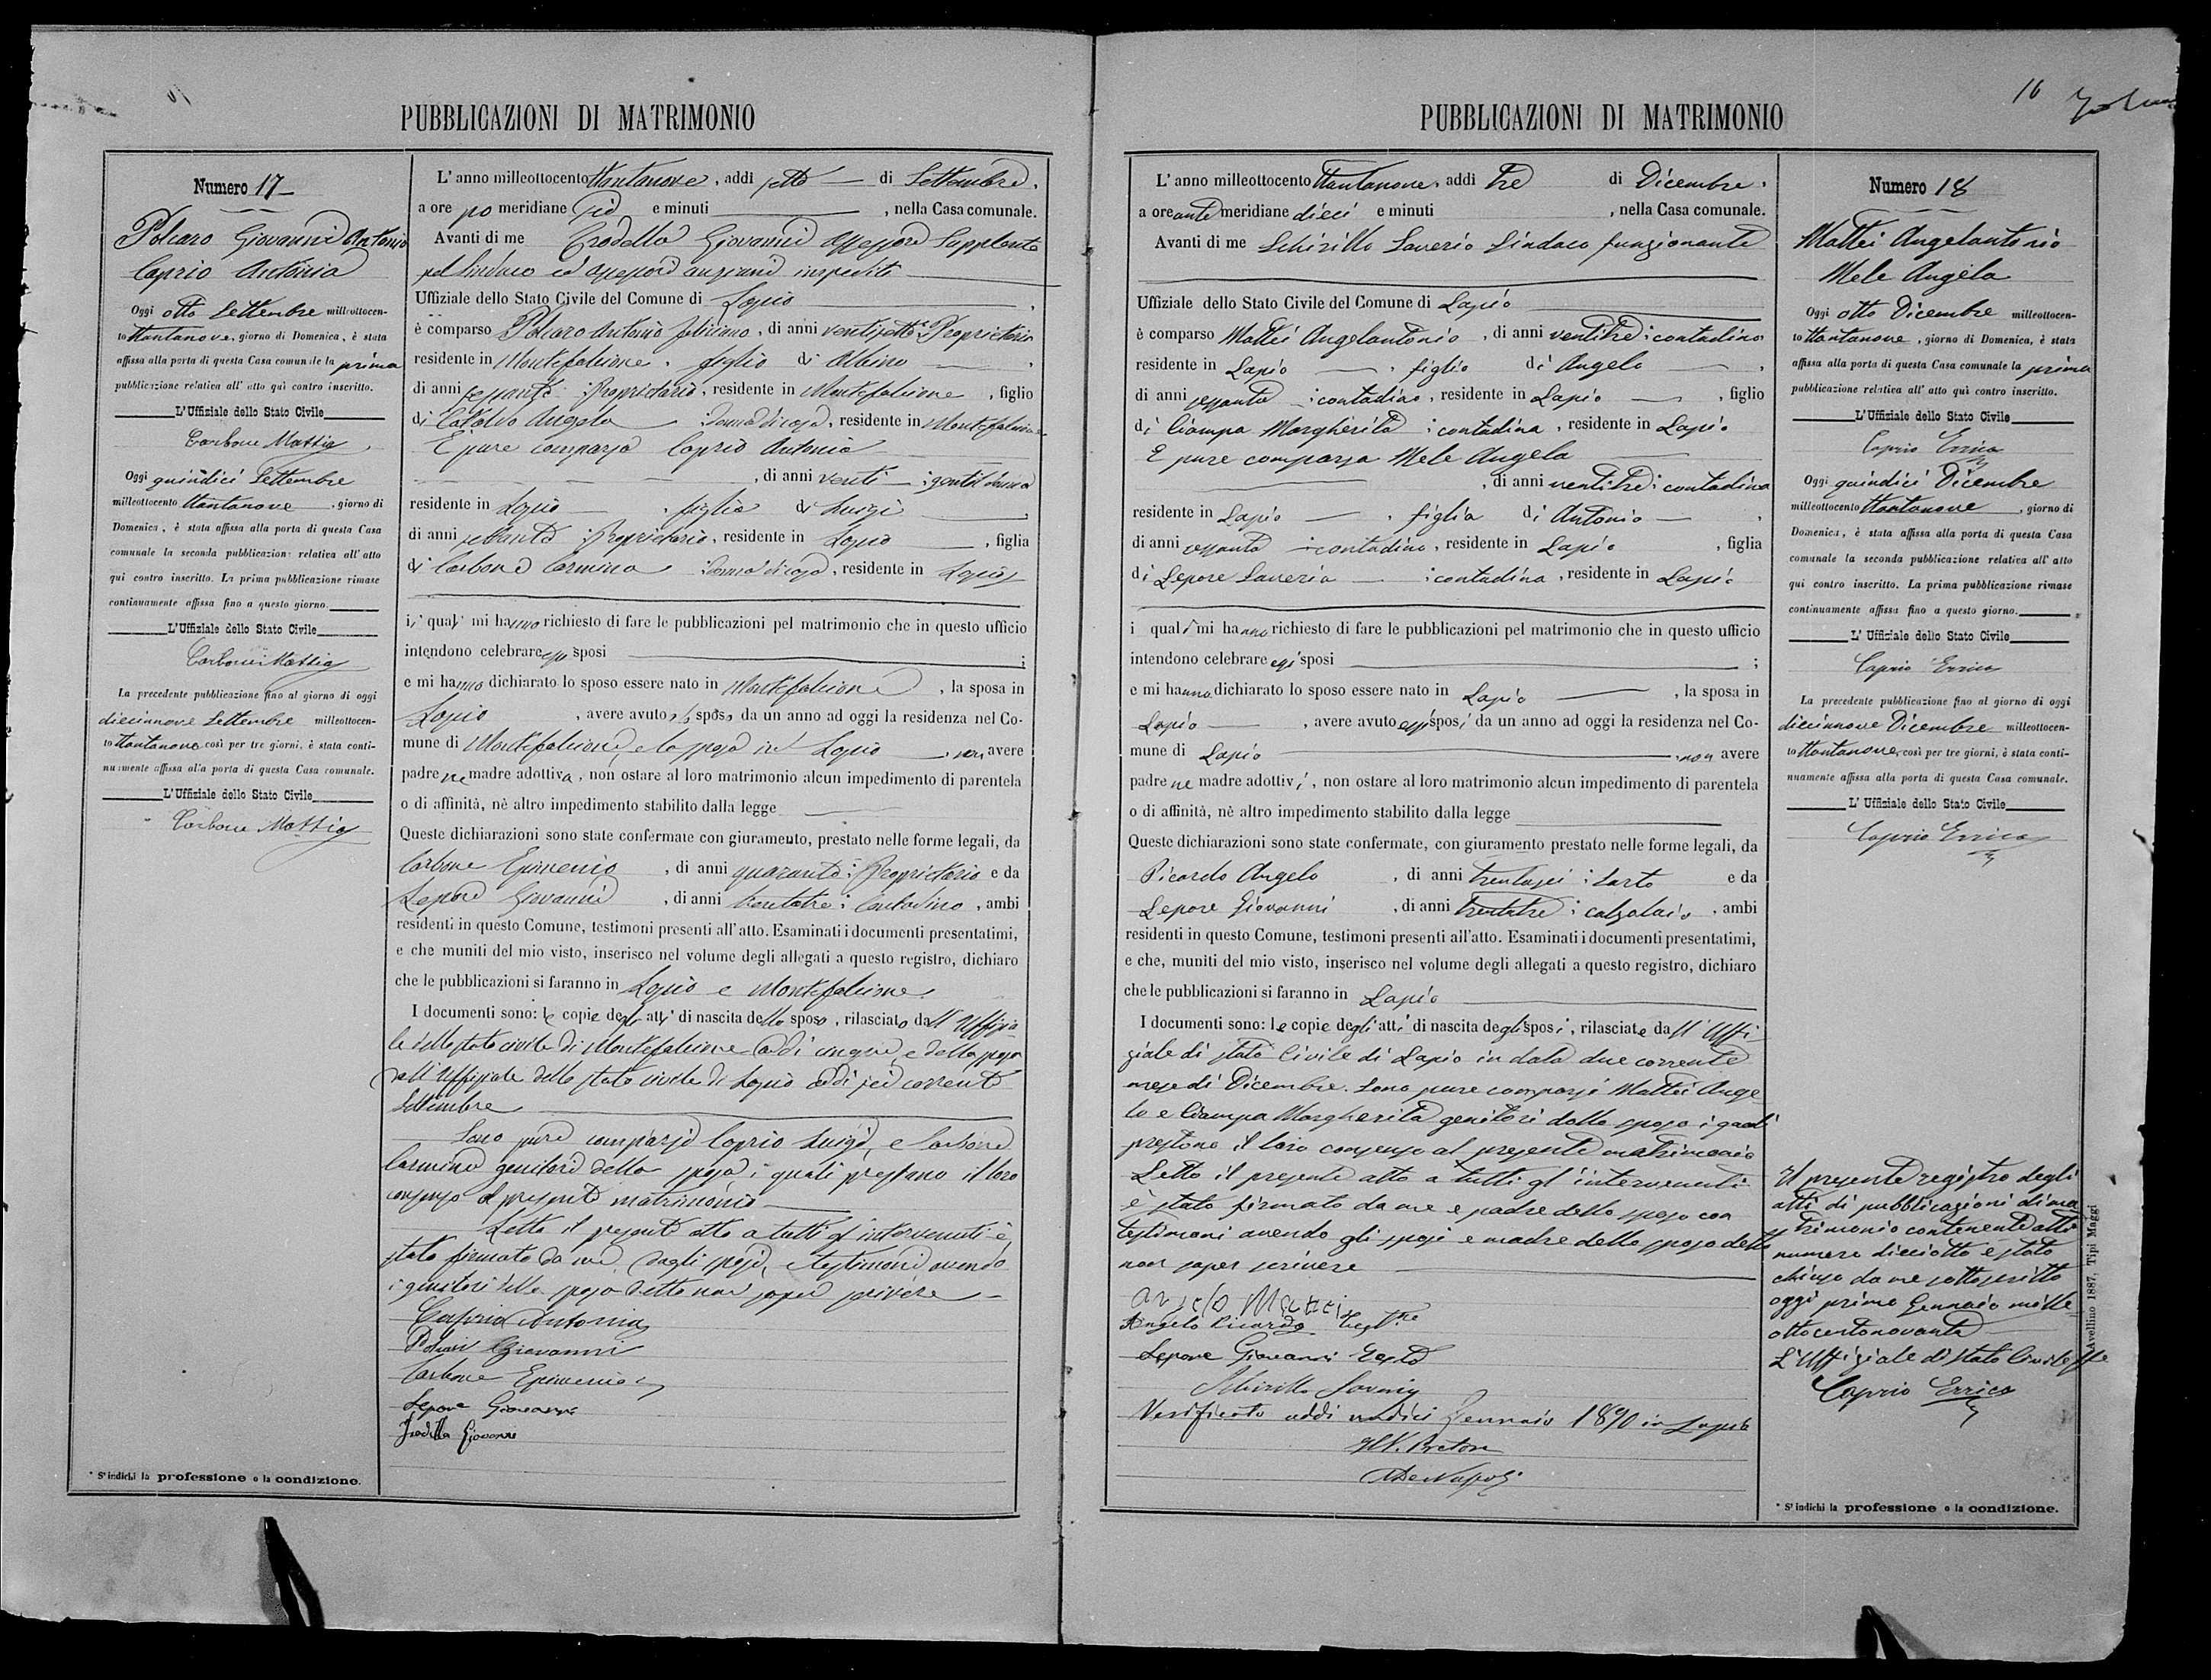 PUBBLICAZIONI DI MATRIMONIO
Numero 17
Polcaro Giovanni Antonio
Caprio Antonia
Oggi otto Settembre milleottocen-
to ttantanove, giorno di Domenica, è stata
affissa alla porta di questa Casa comunale la prima
pubblicazione relativa all' atto quì contro inscritto.
L'Uffiziale dello Stato Civile
Carbone Mattia
Oggi quindici Settembre
milleottocento ttantanove, giorno di
Domenica, è stata affissa alla porta di questa Casa
comunale la seconda pubblicazione relativa all' atto
qui contro inscritto. La prima pubblicazione rimase
continuamente affissa fino a questo giorno.
L'Uffiziale dello Stato Civile
Carbone Mattia
La precedente pubblicazione fino al giorno di oggi
diecinnove Settembre milleottocen-
to ttantanove così per tre giorni, è stata conti-
nuamente affissa alla porta di questa Casa comunale.
L'Uffiziale dello Stato Civile
Carbone Mattia
* Si indichi la professione o la condizione.
L' anno milleottocento ttantanove, addi sette di Settembre,
a ore po meridiane sei e minuti , nella Casa comunale.
Avanti di me Frodella Giovanni Assessore Supplente
pel Sindaco ed assessori anziani impediti
Uffiziale dello Stato Civile del Comune di Lapio
è comparso Polcaro Antonio , di anni ventisette Proprietario
residente in Montefalcione, figlio di Albino
di anni sessanta Proprietario, residente in Montefalcione , figlio
di Cataldo Angela donna di casa, residente in Montefalcione
E pure comparsa Caprio Antonia
, di anni venti gentildonna
residente in Lapio , figlia di Luigi
di anni settanta Proprietario, residente in Lapio , figlia
di Carbone Carmina donna di casa, residente in Lapio
i quali mi hanno richiesto di fare le pubblicazioni pel matrimonio che in questo ufficio
intendono celebrare essi sposi ;
e mi hanno dichiarato lo sposo essere nato in Montefalcione , la sposa in
Lapio , avere avuto lo sposo da un anno ad oggi la residenza nel Co-
mune di Montefalcione, e la sposa in Lapio , non avere
padre ne madre adottiva, non ostare al loro matrimonio alcun impedimento di parentela
o di affinità, nè altro impedimento stabilito dalla legge
Queste dichiarazioni sono state confermate con giuramento, prestato nelle forme legali, da
Carbone Epimenio , di anni quaranta: Proprietario e da
Lepore Giovanni , di anni trentatre: Contadino, ambi
residenti in questo Comune, testimoni presenti all'atto. Esaminati i documenti presentatimi,
e che muniti del mio visto, inserisco nel volume degli allegati a questo registro, dichiaro
che le pubblicazioni si faranno in Lapio e Montefalcione
I documenti sono: le copie degli atti di nascita dello sposo, rilasciato dall' Uffizia
le dello stato civile di Montefalcione addi cinque, e della sposa
dall' Uffiziale dello stato civile di Lapio addi sei corrente
Settembre
Sono pure comparsi Caprio Luigi, e Carbone
Carmina genitori della sposa, i quali prestano il loro
consenso al presente matrimonio
Letto il presente atto a tutti gl' intervenuti è
stato firmato da me, dagli sposi, e testimoni avendo
i genitori della sposa detto non saper scrivere
Caprio Antonia
Polcari Giovanni
Carbone Epimenio
Lepore Giovanni
Frodella Giovanni
16
PUBBLICAZIONI DI MATRIMONIO
L' anno milleottocento ttantanove, addi tre di Dicembre,
a ore ante meridiane dieci e minuti , nella Casa comunale.
Avanti di me Schirillo Saverio Sindaco funzionante
Uffiziale dello Stato Civile del Comune di Lapio
è comparso Mattei Angelantonio , di anni ventitre: contadino
residente in Lapio , figlio di Angelo ,
di anni sessanta : contadino, residente in Lapio , figlio
di Ciampa Margherita : contadina, residente in Lapio
E pure comparsa Mele Angela
, di anni ventitre: contadina
residente in Lapio , figlia di Antonio
di anni sessanta : contadino, residente in Lapio , figlia
di Lepore Saveria : contadina, residente in Lapio
i quali mi hanno richiesto di fare le pubblicazioni pel matrimonio che in questo ufficio
intendono celebrare essi sposi ;
e mi hanno dichiarato lo sposo essere nato in Lapio , la sposa in
Lapio , avere avuto essi sposi da un anno ad oggi la residenza nel Co-
mune di Lapio , non avere
padre ne madre adottivi, non ostare al loro matrimonio alcun impedimento di parentela
o di affinità, nè altro impedimento stabilito dalla legge
Queste dichiarazioni sono state confermate, con giuramento prestato nelle forme legali, da
Picardo Angelo , di anni trentasei: sarto e da
Lepore Giovanni , di anni trentatre: calzolaio, ambi
residenti in questo Comune, testimoni presenti all'atto. Esaminati i documenti presentatimi,
e che, muniti del mio visto, inserisco nel volume degli allegati a questo registro, dichiaro
che le pubblicazioni si faranno in Lapio
I documenti sono: le copie degli atti di nascita degli sposi, rilasciate dall' Uffi-
ziale di stato Civile di Lapio in data due corrente
mese di Dicembre. Sono pure comparsi Mattei Ange
lo e Ciampa Margherita genitori dello sposo i quali
prestano il loro consenso al presente matrimonio
Letto il presente atto a tutti gl' intervenuti
è stato firmato da me e padre dello sposo con
testimoni avendo gli sposi e madre dello sposo detto
non saper scrivere
Angelo Mattei
Angelo Picardo Teste
Lepore Giovanni Teste
Schirillo Saverio
Verificato addi undici Gennaio 1890 in Lapio
Il V. Pretore
De Napoli
Numero 18
Mattei Angelantonio
Mele Angela
Oggi otto Dicembre milleottocen-
to ttantanove, giorno di Domenica, è stata
affissa alla porta di questa Casa comunale la prima
pubblicazione relativa all' atto quì contro inscritto.
L'Uffiziale dello Stato Civile
Caprio Errico
Oggi quindici Dicembre
milleottocento ttantanove, giorno di
Domenica, è stata affissa alla porta di questa Casa
comunale la seconda pubblicazione relativa all' atto
qui contro inscritto. La prima pubblicazione rimase
continuamente affissa fino a questo giorno.
L' Uffiziale dello Stato Civile
Caprio Errico
La precedente pubblicazione fino al giorno di oggi
diecinnove Dicembre milleottocen-
to ttantanove, così per tre giorni, è stata conti-
nuamente affissa alla porta di questa Casa comunale.
L' Uffiziale dello Stato Civile
Caprio Errico
Il presente registro degli
atti di pubblicazioni di ma
trimonio contenente atti
numero dieciotto è stato
chiuso da me sottoscritto
oggi primo Gennaio mille
ottocentonovanta
L'Uffiziale di stato Civile ff.
Caprio Errico
Avellino 1887, Tipi Maggi
* Si indichi la professione o la condizione.